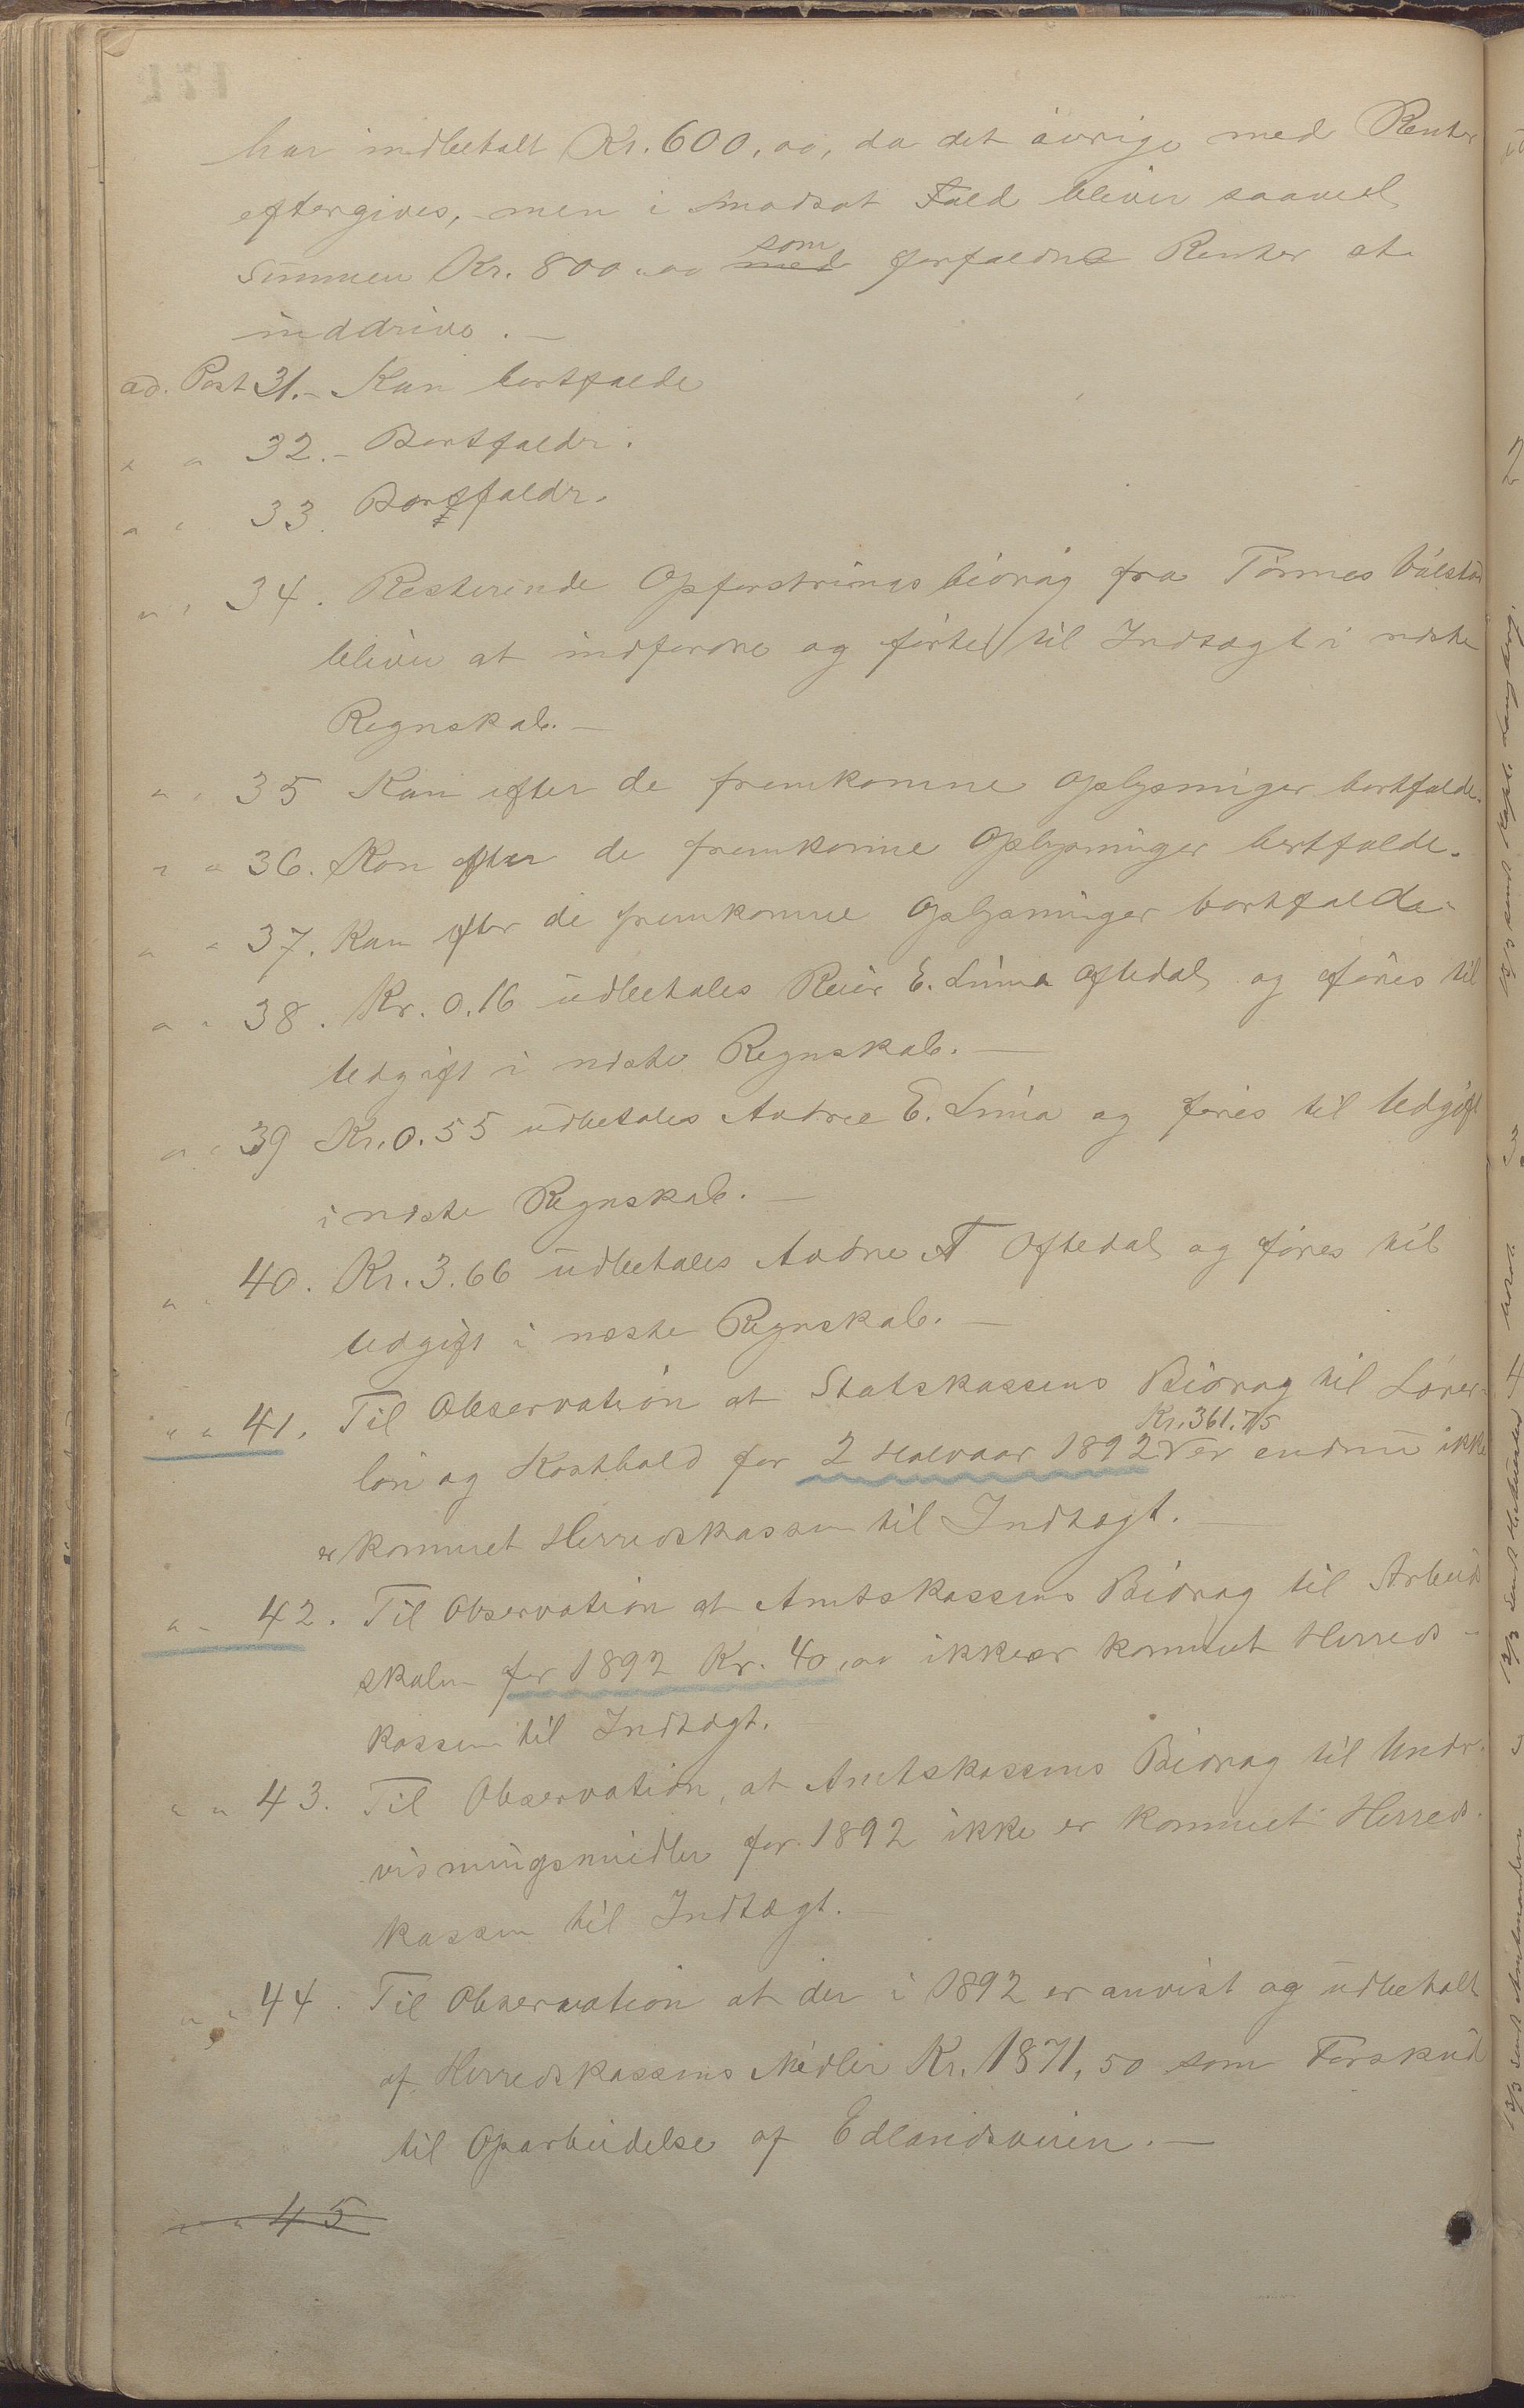 har indbetalt Kr. 600,00, da det øvrige med Renter
eftergives, men i modsat Fald bliver saavel
Summen Kr. 800,00 som forfaldne Renter at
inddrive. —
ad. Post 31. – Kan bortfalde
" " 32. – Bortfaldr.
" " 33. Bortfaldr.
" " 34. Resterende Opfostringsbidrag fra Tønnes
bliver at indfordre og føres til Indtægt i næste
Regnskab. —
" " 35 Kan efter de fremkomne Oplysninger bortfalde.
" " 36. Kan efter de fremkomne Oplysninger bortfalde.
" " 37. Kan efter de fremkomne Oplysninger bortfalde.
" " 38. Kr. 0.16 udbetales Reier E. Lima Oftedal og føres til
Udgift i næste Regnskab. —
" " 39 Kr. 0.55 udbetales Andreé E. Lima og føres til Udgift
i næste Regnskab. —
" " 40. Kr. 3.66 udbetales Andre T Oftedal og føres til
Udgift i næste Regnskab. —
" " 41. Til Observation at Statskassens Bidrag til Lærer-
løn og Kosthold for 2 Halvaar 1892 Kr. 361.75 er endnu ikke
kommet Herredskassen til Indtægt. —
" " 42. Til Observation at Amtskassens Bidrag til Arbeids
skolen for 1892 Kr. 40,00 ikke er kommet Herreds-
kassen til Indtægt. —
" " 43. Til Observation, at Amtskassens Bidrag til Under-
visningsmidler for 1892 ikke er kommet Herreds-
kassen til Indtægt. —
" " 44. Til Observation at der i 1892 er anvist og udbetalt
af Herredskassens Midler Kr. 1871,50 som Forskud
til Oparbeidelse af Edlandsveien. —
" " 45